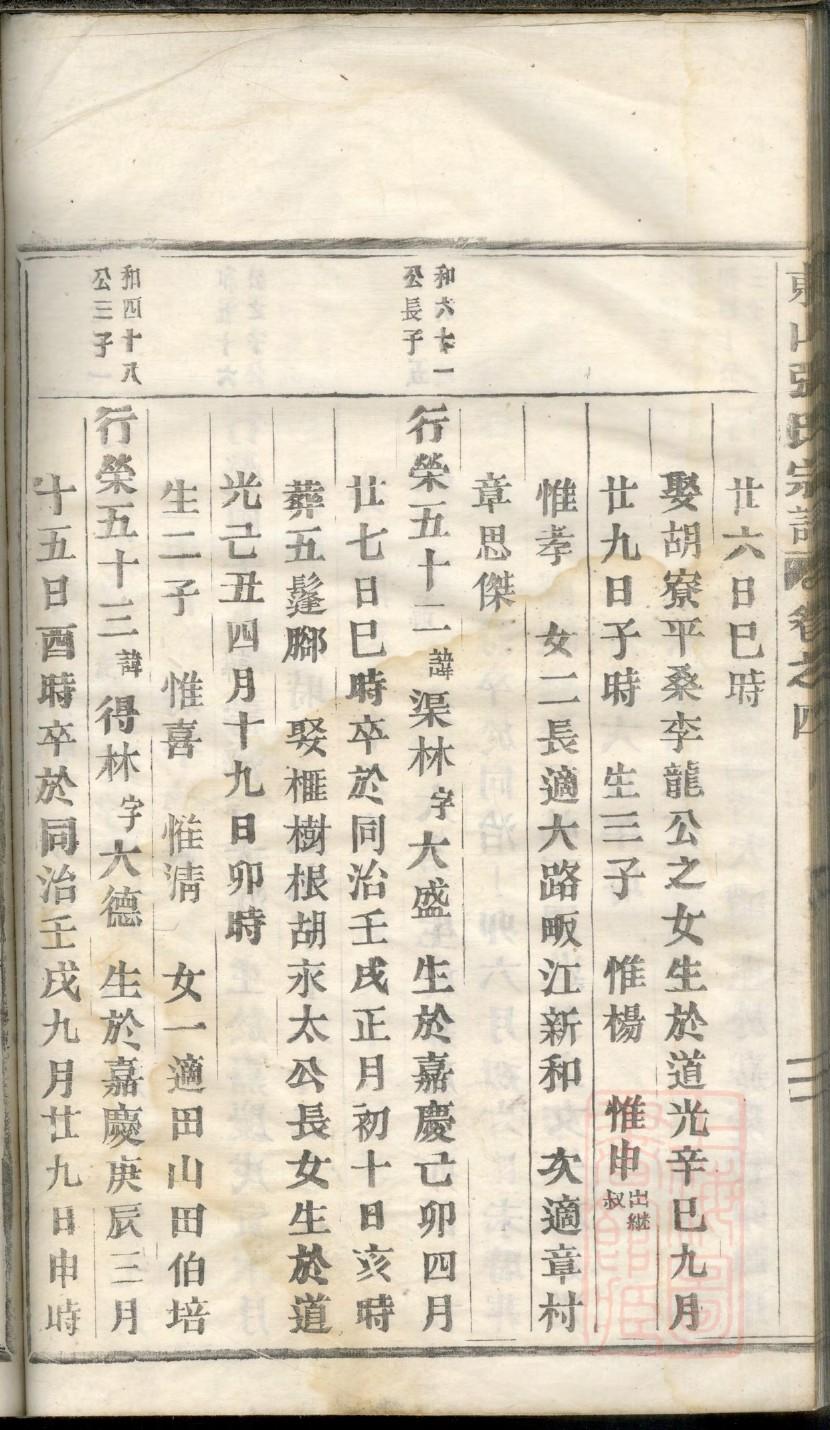 東山張氏宗譜 卷之四
廿六日巳時
娶胡寮平桑李龍公之女生於道光辛巳九月
廿九日子時 生三子 惟楊 惟申出繼叔
惟孝 女二長適大路畈江新和 次適章村
章思傑
和六十一公長子
行榮五十二諱渠林字大盛 生於嘉慶己卯四月
廿七日巳時卒於同治壬戌正月初十日亥時
葬五鬔腳 娶榧樹根胡永太公長女生於道
光己丑四月十九日卯時
生二子 惟喜 惟清 女一適田山田伯培
和四十八公三子
行榮五十三諱得林字大德 生於嘉慶庚辰三月
十五日酉時卒於同治壬戌九月廿九日申時